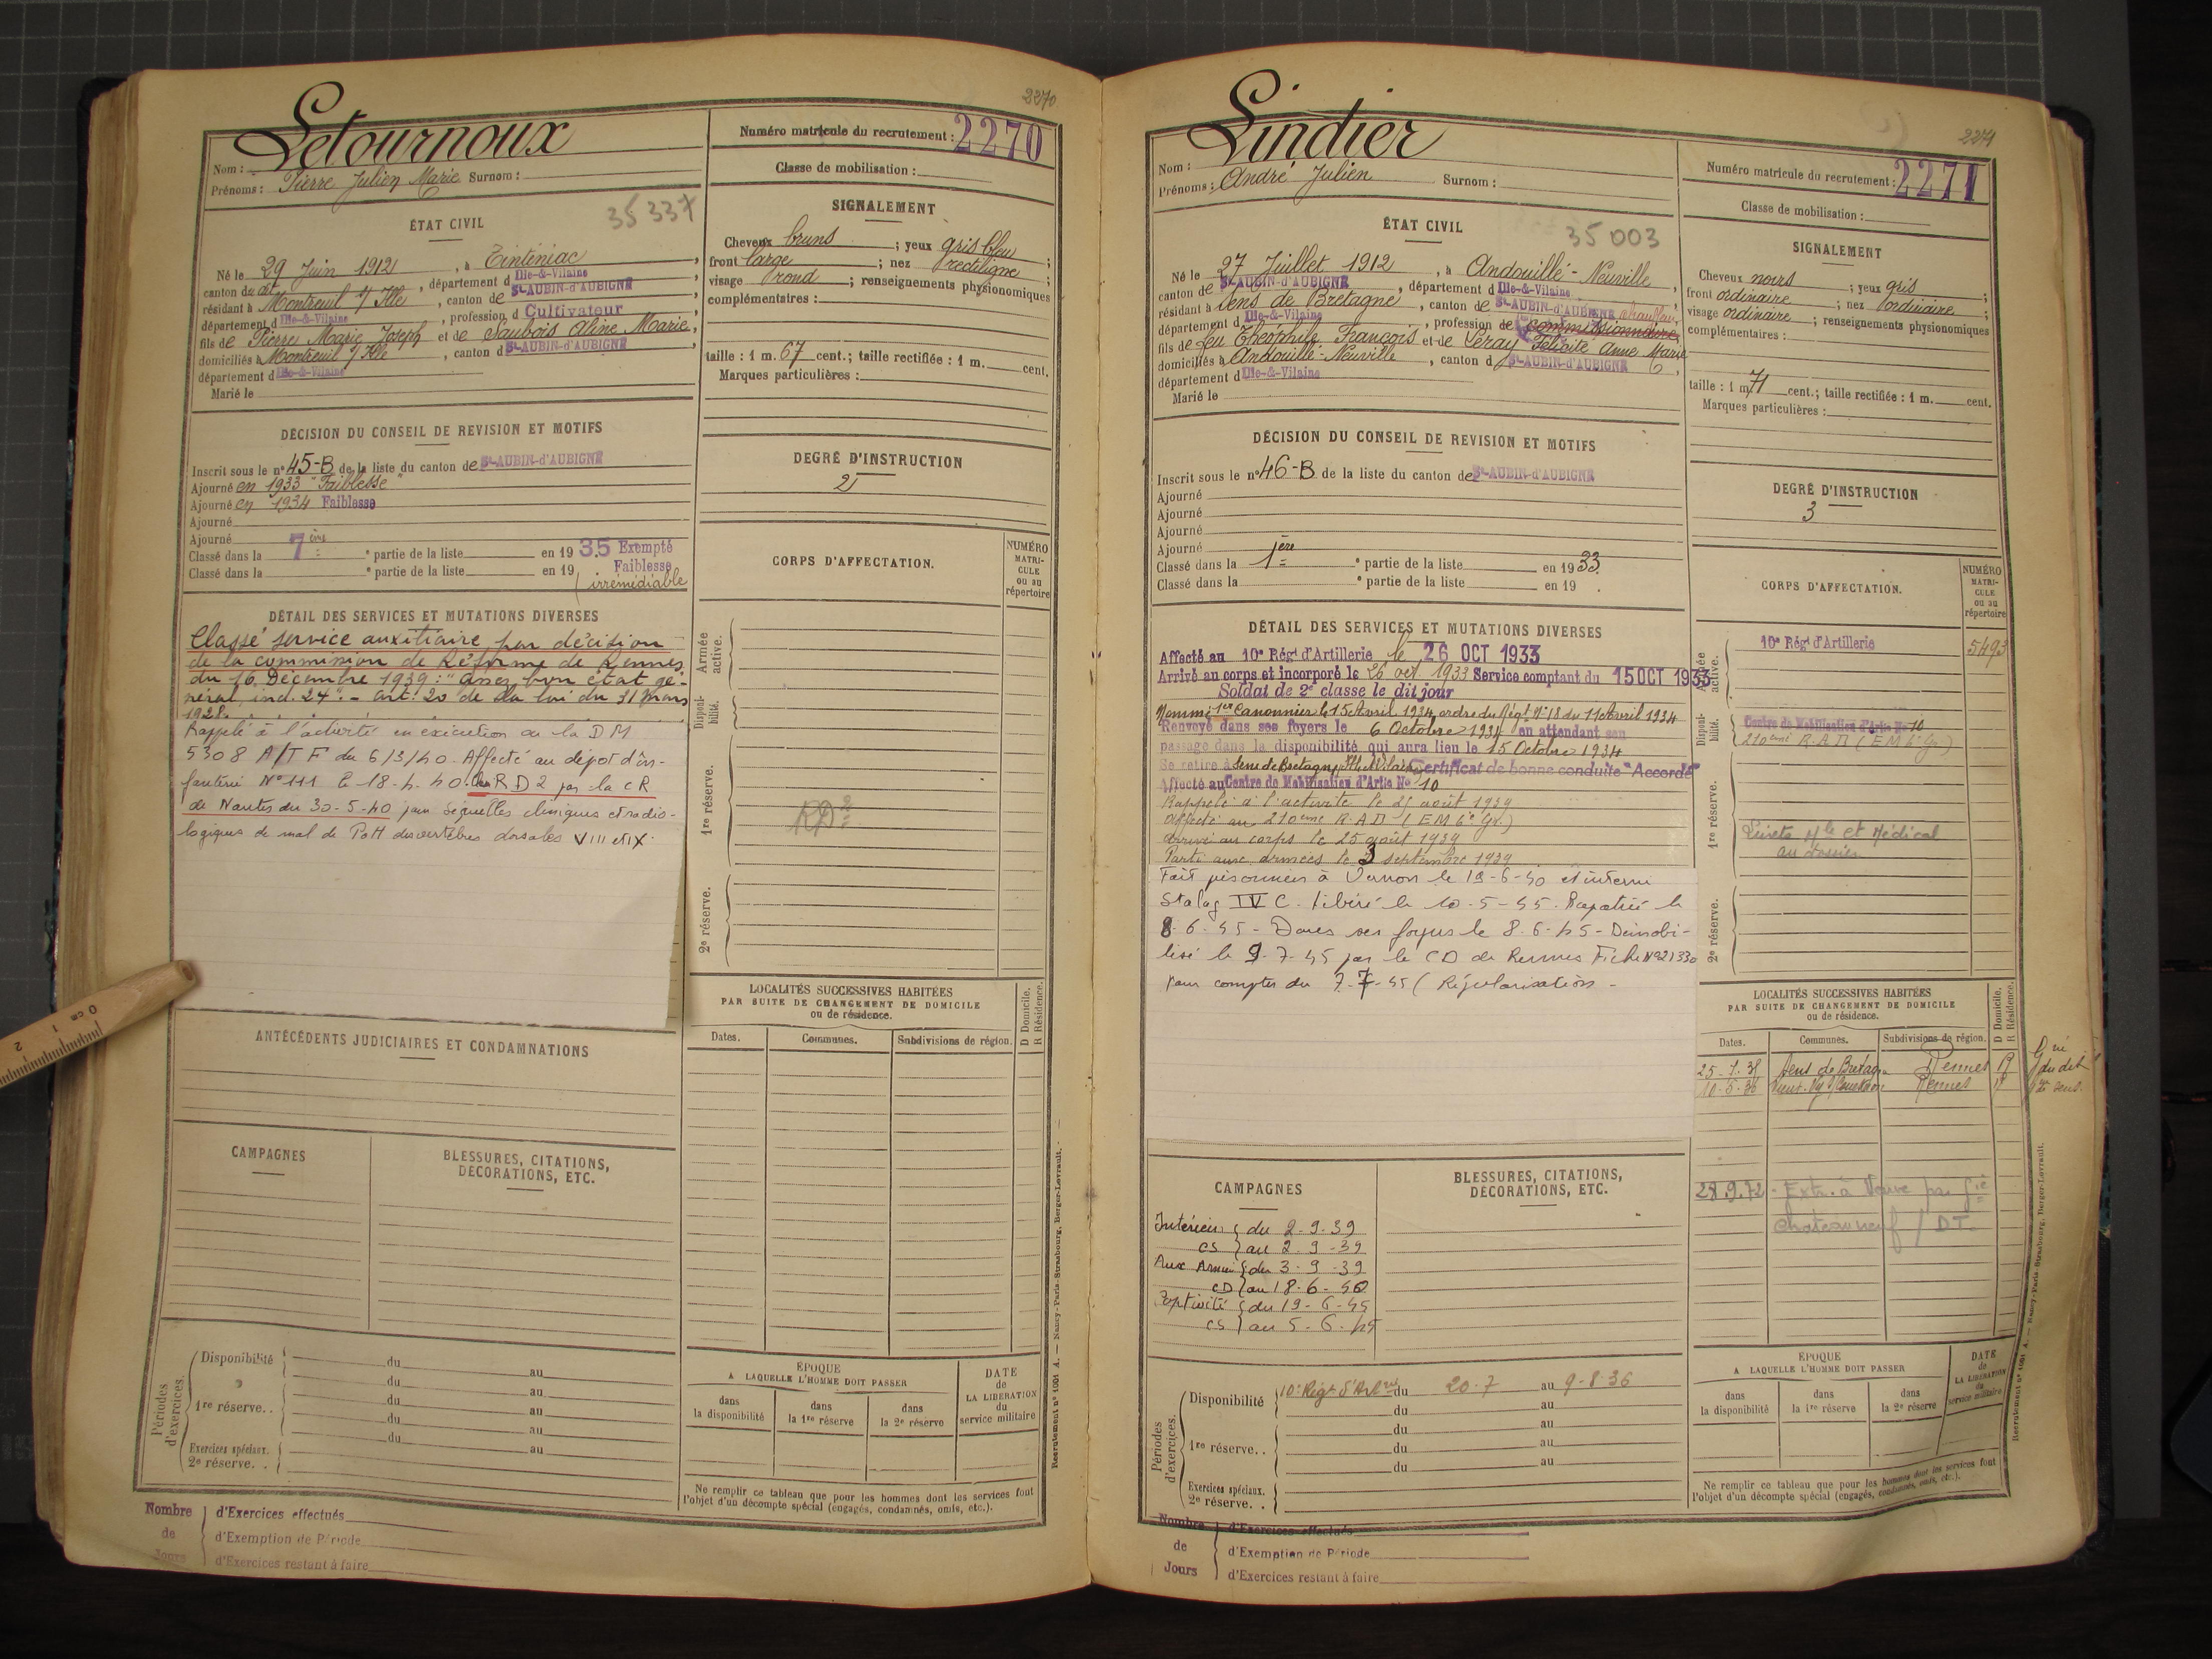 2270
Letournoux
Nom :
Prénoms : Pierre Julien Marie Surnom :
Numéro matricule du recrutement : 2270
Classe de mobilisation :
35 337
ÉTAT CIVIL
Né le 29 Juin 1912, à Tinténiac,
canton du dit, département d Ille-&-Vilaine
résidant à Montreuil s/ Ille, canton de St-AUBIN-d'AUBIGNÉ,
département d Ille-&-Vilaine, profession d Cultivateur
fils de Pierre Marie Joseph et de Saubois Aline Marie,
domiciliés à Montreuil s/ Ille, canton d St-AUBIN-d'AUBIGNÉ,
département d Ille-&-Vilaine
Marié le
SIGNALEMENT
Cheveux bruns ; yeux gris bleu ;
front large ; nez rectiligne ;
visage rond ; renseignements physionomiques
complémentaires :
taille : 1 m. 67 cent.; taille rectifiée : 1 m. cent.
Marques particulières :
DÉCISION DU CONSEIL DE REVISION ET MOTIFS
Inscrit sous le n° 45-B de la liste du canton de St-AUBIN-d'AUBIGNÉ
Ajourné en 1933 "Faiblesse"
Ajourné en 1934 Faiblesse
Ajourné
Ajourné
Classé dans la 7ème e partie de la liste en 19 35 Exempté
Faiblesse
Classé dans la e partie de la liste en 19 irrémédiable
DEGRÉ D'INSTRUCTION
2
DÉTAIL DES SERVICES ET MUTATIONS DIVERSES
Classé service auxiliaire par décision
de la commission de Réforme de Rennes
du 16 Décembre 1939 : "assez bon état gé-
néral, ind. 24". - art. 20 de la loi du 31 mars
1928.
Rappelé à l'activité en exécution de la DM
5308 A/TF du 6/3/40. Affecté au dépôt d'in-
fanterie N° 111 le 18-4-40. RD 2 par la CR
de Nantes du 30-5-40 pour séquelles cliniques et radio-
logiques de mal de Pott des vertèbres dorsales VIII et IX.
CORPS D'AFFECTATION.
NUMÉRO MATRI-CULE ou au répertoire
Armée active.
Disponi-bilité.
1re réserve.
RD 2
2e réserve.
ANTÉCÉDENTS JUDICIAIRES ET CONDAMNATIONS
LOCALITÉS SUCCESSIVES HABITÉES
PAR SUITE DE CHANGEMENT DE DOMICILE
ou de résidence.
D Domicile.
R Résidence.
Dates. Communes. Subdivisions de région.
CAMPAGNES
BLESSURES, CITATIONS,
DÉCORATIONS, ETC.
Périodes d'exercices.
Disponibilité du au
du au
1re réserve. . du au
du au
du au
Exercices spéciaux.
2e réserve. .
ÉPOQUE
A LAQUELLE L'HOMME DOIT PASSER
dans la disponibilité
dans la 1re réserve
dans la 2e réserve
DATE de LA LIBÉRATION du service militaire
Ne remplir ce tableau que pour les hommes dont les services font
l'objet d'un décompte spécial (engagés, condamnés, omis, etc.).
Recrutement n° 1001 A. — Nancy-Paris-Strasbourg, Berger-Levrault.
Nombre de Jours
d'Exercices effectués
d'Exemption de Période
d'Exercices restant à faire
2271
Lindier
Nom :
Prénoms : André Julien Surnom :
Numéro matricule du recrutement : 2271
Classe de mobilisation :
35 003
ÉTAT CIVIL
Né le 27 Juillet 1912, à Andouillé-Neuville,
canton de St-AUBIN-d'AUBIGNÉ, département d Ille-&-Vilaine,
résidant à Sens de Bretagne, canton de St-AUBIN-d'AUBIGNÉ
département d Ille-&-Vilaine, profession de commissionnaire
fils de feu Théophile François et de Leray Félicité Anne Marie
domiciliés à Andouillé-Neuville, canton d St-AUBIN-d'AUBIGNÉ,
département d Ille-&-Vilaine
Marié le
SIGNALEMENT
Cheveux noirs ; yeux gris ;
front ordinaire ; nez ordinaire ;
visage ordinaire ; renseignements physionomiques
complémentaires :
taille : 1 m 71 cent.; taille rectifiée : 1 m. cent.
Marques particulières :
DÉCISION DU CONSEIL DE REVISION ET MOTIFS
Inscrit sous le n° 46-B de la liste du canton de St-AUBIN-d'AUBIGNÉ
Ajourné
Ajourné
Ajourné
Ajourné
Classé dans la 1ère e partie de la liste en 1933.
Classé dans la e partie de la liste en 19 .
DEGRÉ D'INSTRUCTION
3
DÉTAIL DES SERVICES ET MUTATIONS DIVERSES
Affecté au 10e Régt d'Artillerie le 26 OCT 1933
Arrivé au corps et incorporé le 26 oct 1933 Service comptant du 15 OCT 1933
Soldat de 2e classe le dit jour
Nommé 1er Canonnier le 15 Avril 1934 ordre du Régt N° 18 du 11 Avril 1934
Renvoyé dans ses foyers le 6 Octobre 1934 en attendant son
passage dans la disponibilité qui aura lieu le 15 Octobre 1934
Se retire à Sens de Bretagne Ille & Vilaine Certificat de bonne conduite "Accordé"
Affecté au Centre de Mobilisation d'Artie No 10
Rappelé à l'activité le 25 août 1939
Affecté au 210ème R.A.D (EM 6e Gr.)
Arrivé au corps le 25 août 1939
Parti aux armées le 3 septembre 1939
Fait prisonnier à Vernon le 19-6-40 et interné
Stalag IV C. Libéré le 10-5-45. Rapatrié le
8-6-45 - Dans ses foyers le 8-6-45 - Démobi-
lisé le 9-7-45 par le CD de Rennes Fiche N° 21330
pour compter du 7-7-45 (Régularisation -
CORPS D'AFFECTATION.
NUMÉRO MATRI-CULE ou au répertoire
Armée active.
10e Régt d'Artillerie 5493
Disponi-bilité.
Centre de Mobilisation d'Artie No 10
210ème R.A.D (EM 6e Gr.)
1re réserve.
Livrets Mle et Médical
au dossier
2e réserve.
LOCALITÉS SUCCESSIVES HABITÉES
PAR SUITE DE CHANGEMENT DE DOMICILE
ou de résidence.
D Domicile.
R Résidence.
Dates. Communes. Subdivisions de région.
Sens de Bretagne Rennes R
10-5-36 Rennes
28.9.72 - Extr. à Veuve par Gie
Chateauneuf / DT
CAMPAGNES
Intérieur du 2-9-39
CS au 2-9-39
Aux Armées du 3-9-39
CD au 18-6-40
Captivité du 19-6-45
CS au 5-6-45
BLESSURES, CITATIONS,
DÉCORATIONS, ETC.
Périodes d'exercices.
Disponibilité 10e Régt d'Artie du 20-7 au 9-8-36
du au
du au
1re réserve. . du au
du au
Exercices spéciaux.
2e réserve. .
ÉPOQUE
A LAQUELLE L'HOMME DOIT PASSER
dans la disponibilité
dans la 1re réserve
dans la 2e réserve
DATE de LA LIBÉRATION du service militaire
Ne remplir ce tableau que pour les hommes dont les services font
l'objet d'un décompte spécial (engagés, condamnés, omis, etc.).
Recrutement n° 1001 A. — Nancy-Paris-Strasbourg, Berger-Levrault.
Nombre de Jours
d'Exercices effectués
d'Exemption de Période
d'Exercices restant à faire
0 cm 1 2